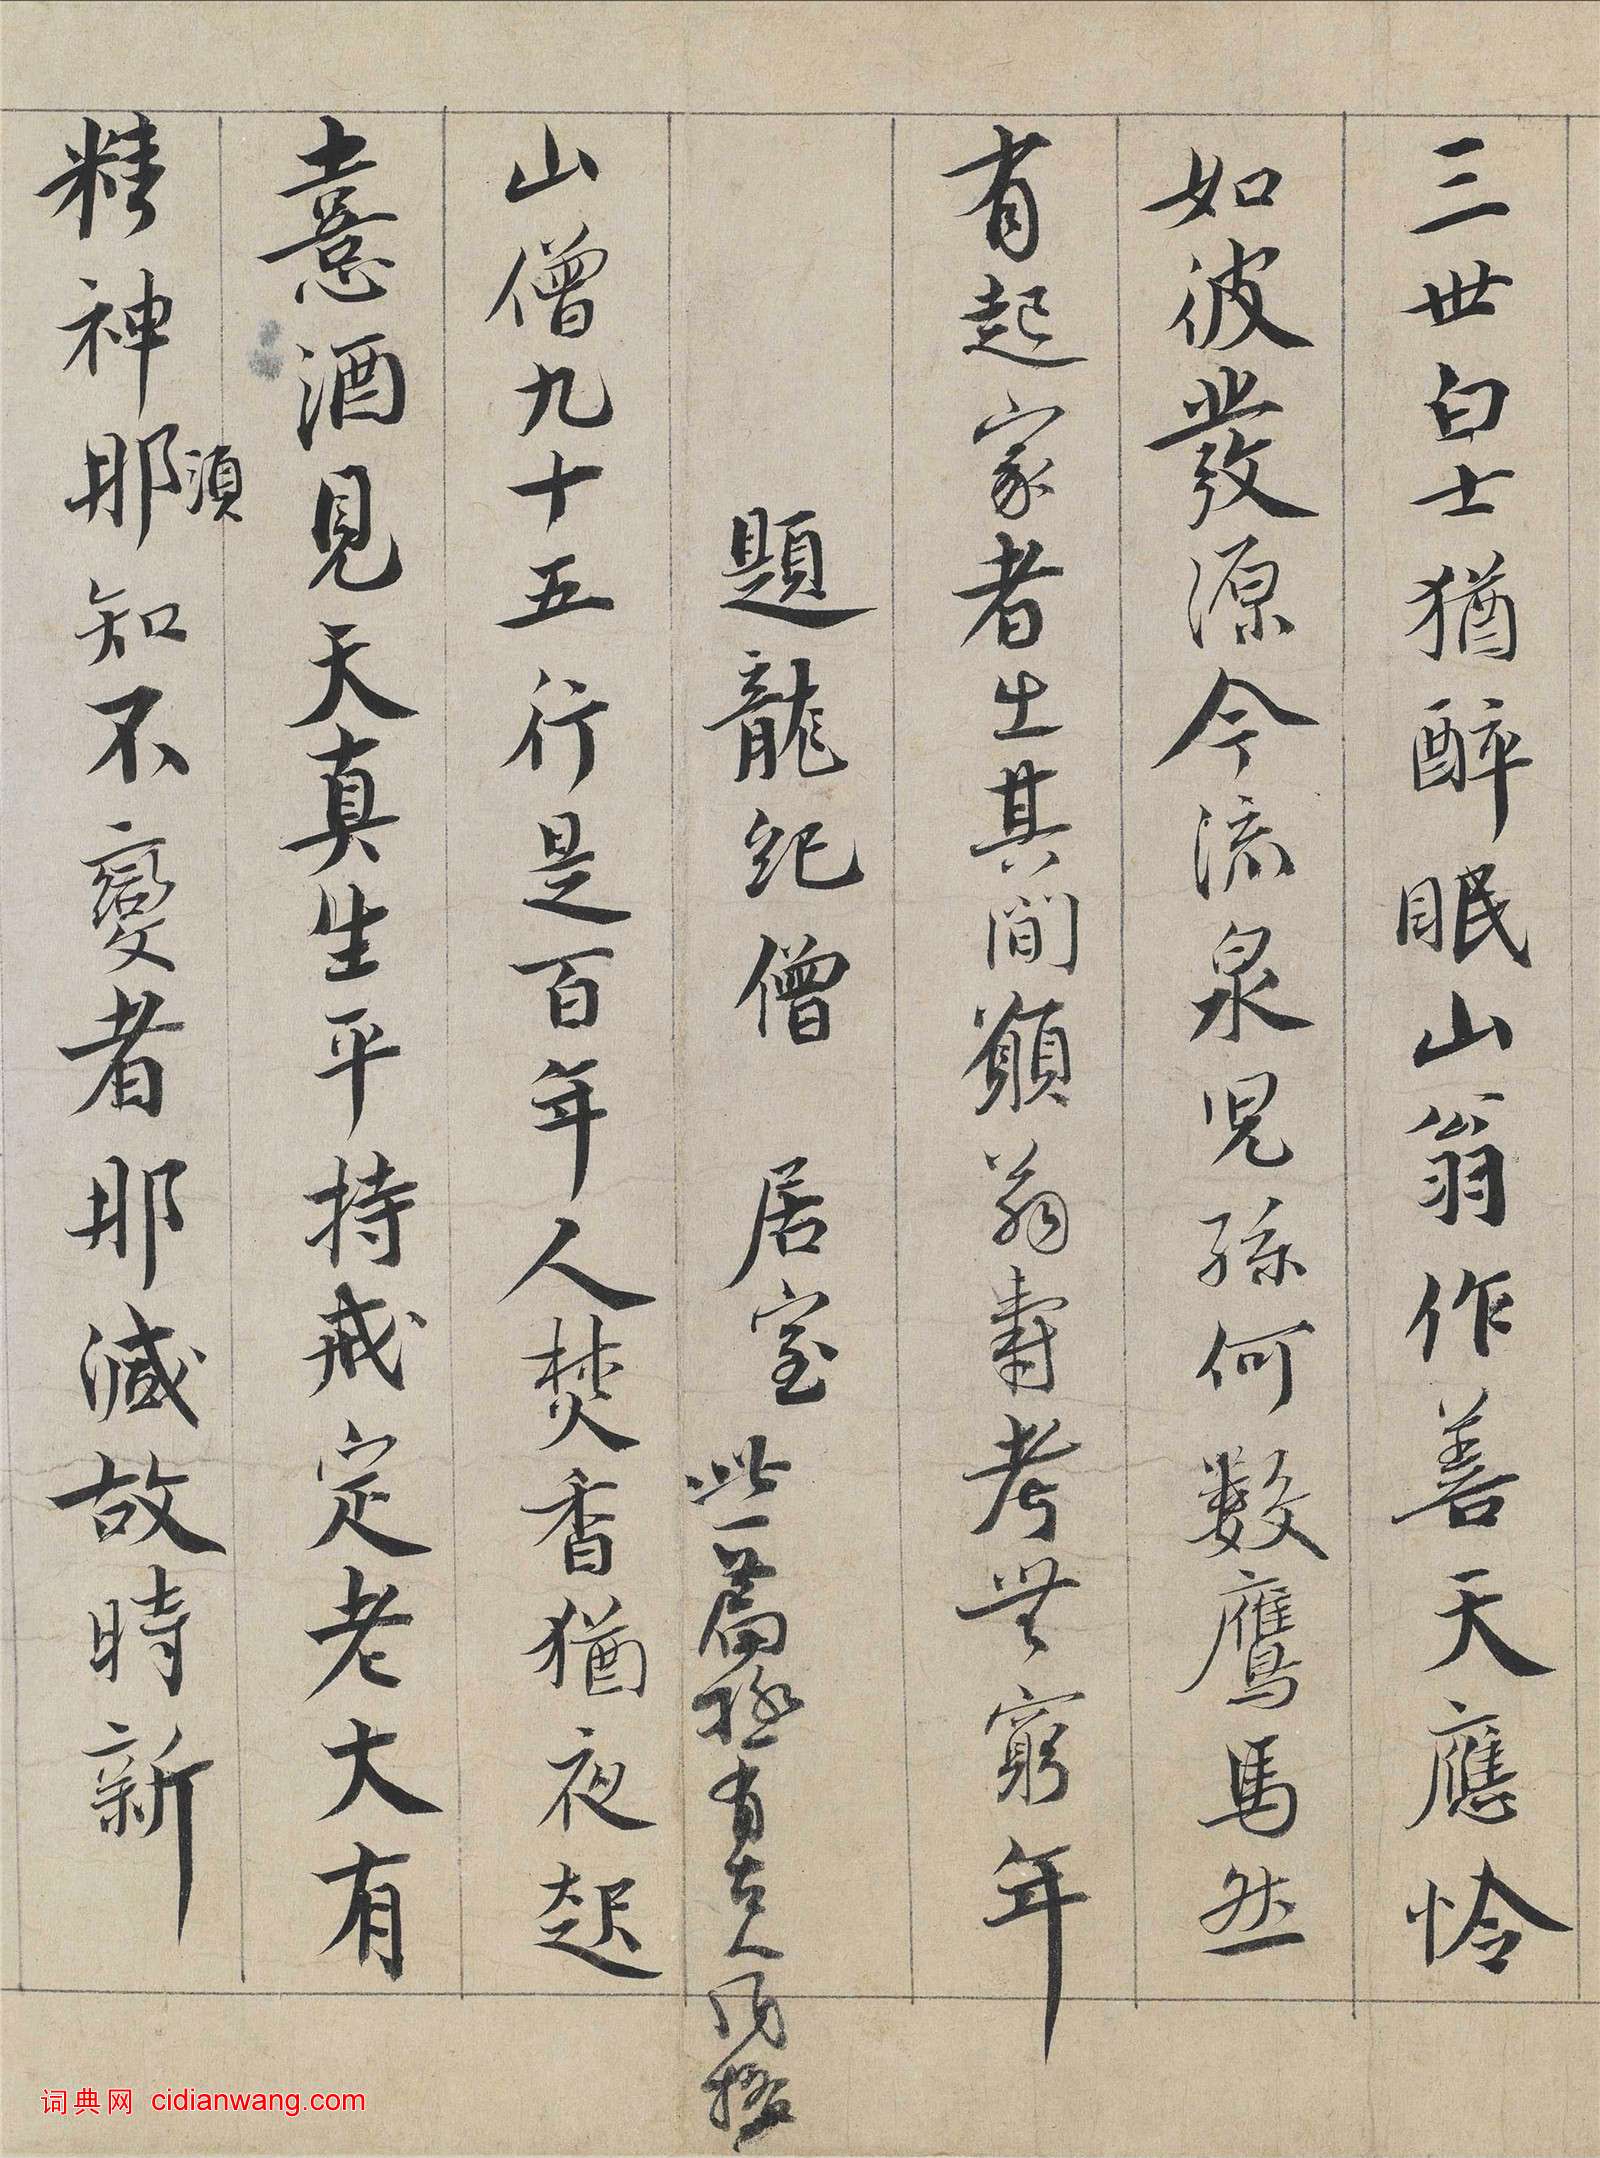 三世白士猶醉眠山翁作善天應憐
如彼發源今流泉兒孫何數鷹馬然
有起家者生其間願翁壽考無窮年
題龍紀僧居室 此一篇極有古人風格
山僧九十五行是百年人焚香猶夜起
憙酒見天真生平持戒定老大有
精神那須知不變者那減故時新
词典网 cidianwang.com